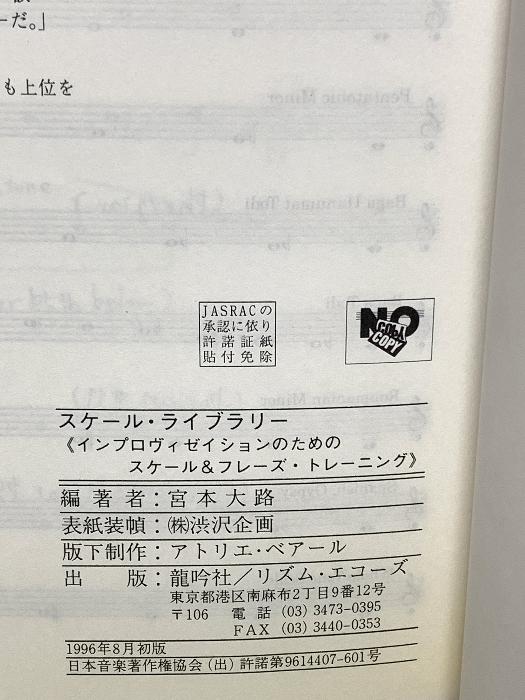 ーだ。」
も上位を
Pentatonic Minor
Raga Hanumat Todi
Roumanian Minor
JASRACの
承認に依り
許諾証紙
貼付免除
NO
COPY
スケール・ライブラリー
《インプロヴィゼイションのための
スケール＆フレーズ・トレーニング》
編著者：宮本大路
表紙装幀：㈱渋沢企画
版下制作：アトリエ・ベアール
出版：龍吟社／リズム・エコーズ
東京都港区南麻布2丁目9番12号
〒106 電話 (03) 3473-0395
FAX (03) 3440-0353
1996年8月初版
日本音楽著作権協会（出）許諾第9614407-601号